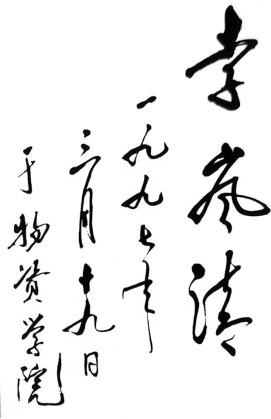 李岚清
一九九七年
三月十九日
于物资学院